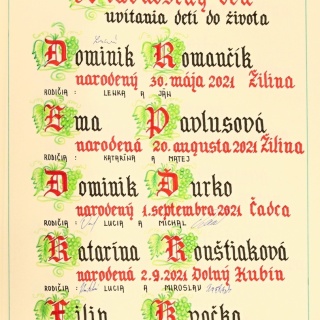 uvítania detí do života
Dominik Romančík
narodený 30. mája 2021 Žilina
RODIČIA : LENKA A JÁN
Ema Pavlusová
narodená 20. augusta 2021 Žilina
RODIČIA : KATARÍNA A MATEJ
Dominik Durko
narodený 1. septembra 2021 Čadca
RODIČIA : LUCIA A MICHAL
Katarína Konštiaková
narodená 2.9.2021 Dolný Kubín
RODIČIA : LUCIA A MIROSLAV
Filip